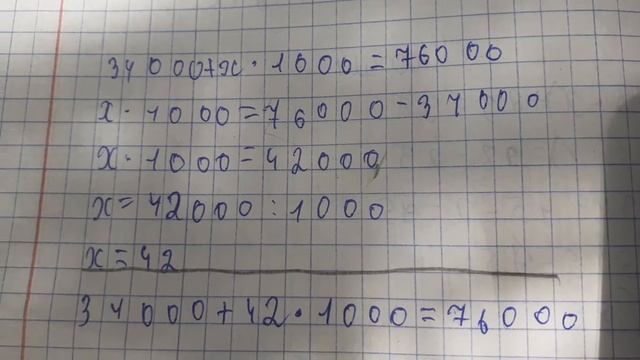 34000+x·1000=76000
x·1000=76000-34000
x·1000=42000
x=42000:1000
x=42
34000+42·1000=76000